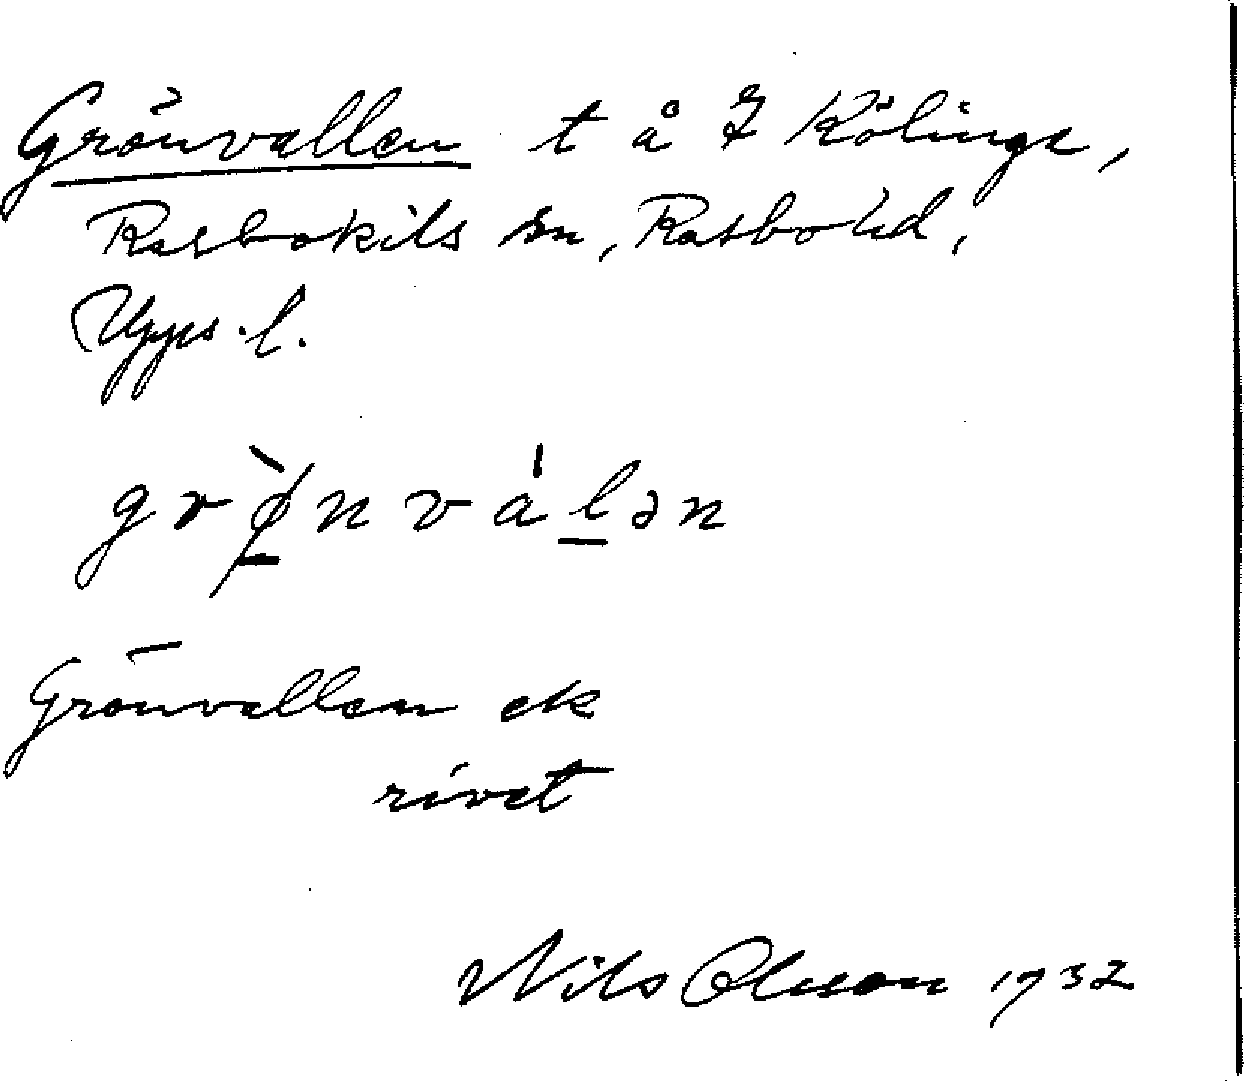 Grönvallen t å 7 Kölinge,
Rasbokils sn, Rasbo hd,
Upps. l.
grø̀nválən
Grönvallen ek
rivet
Nils Olsson 1932